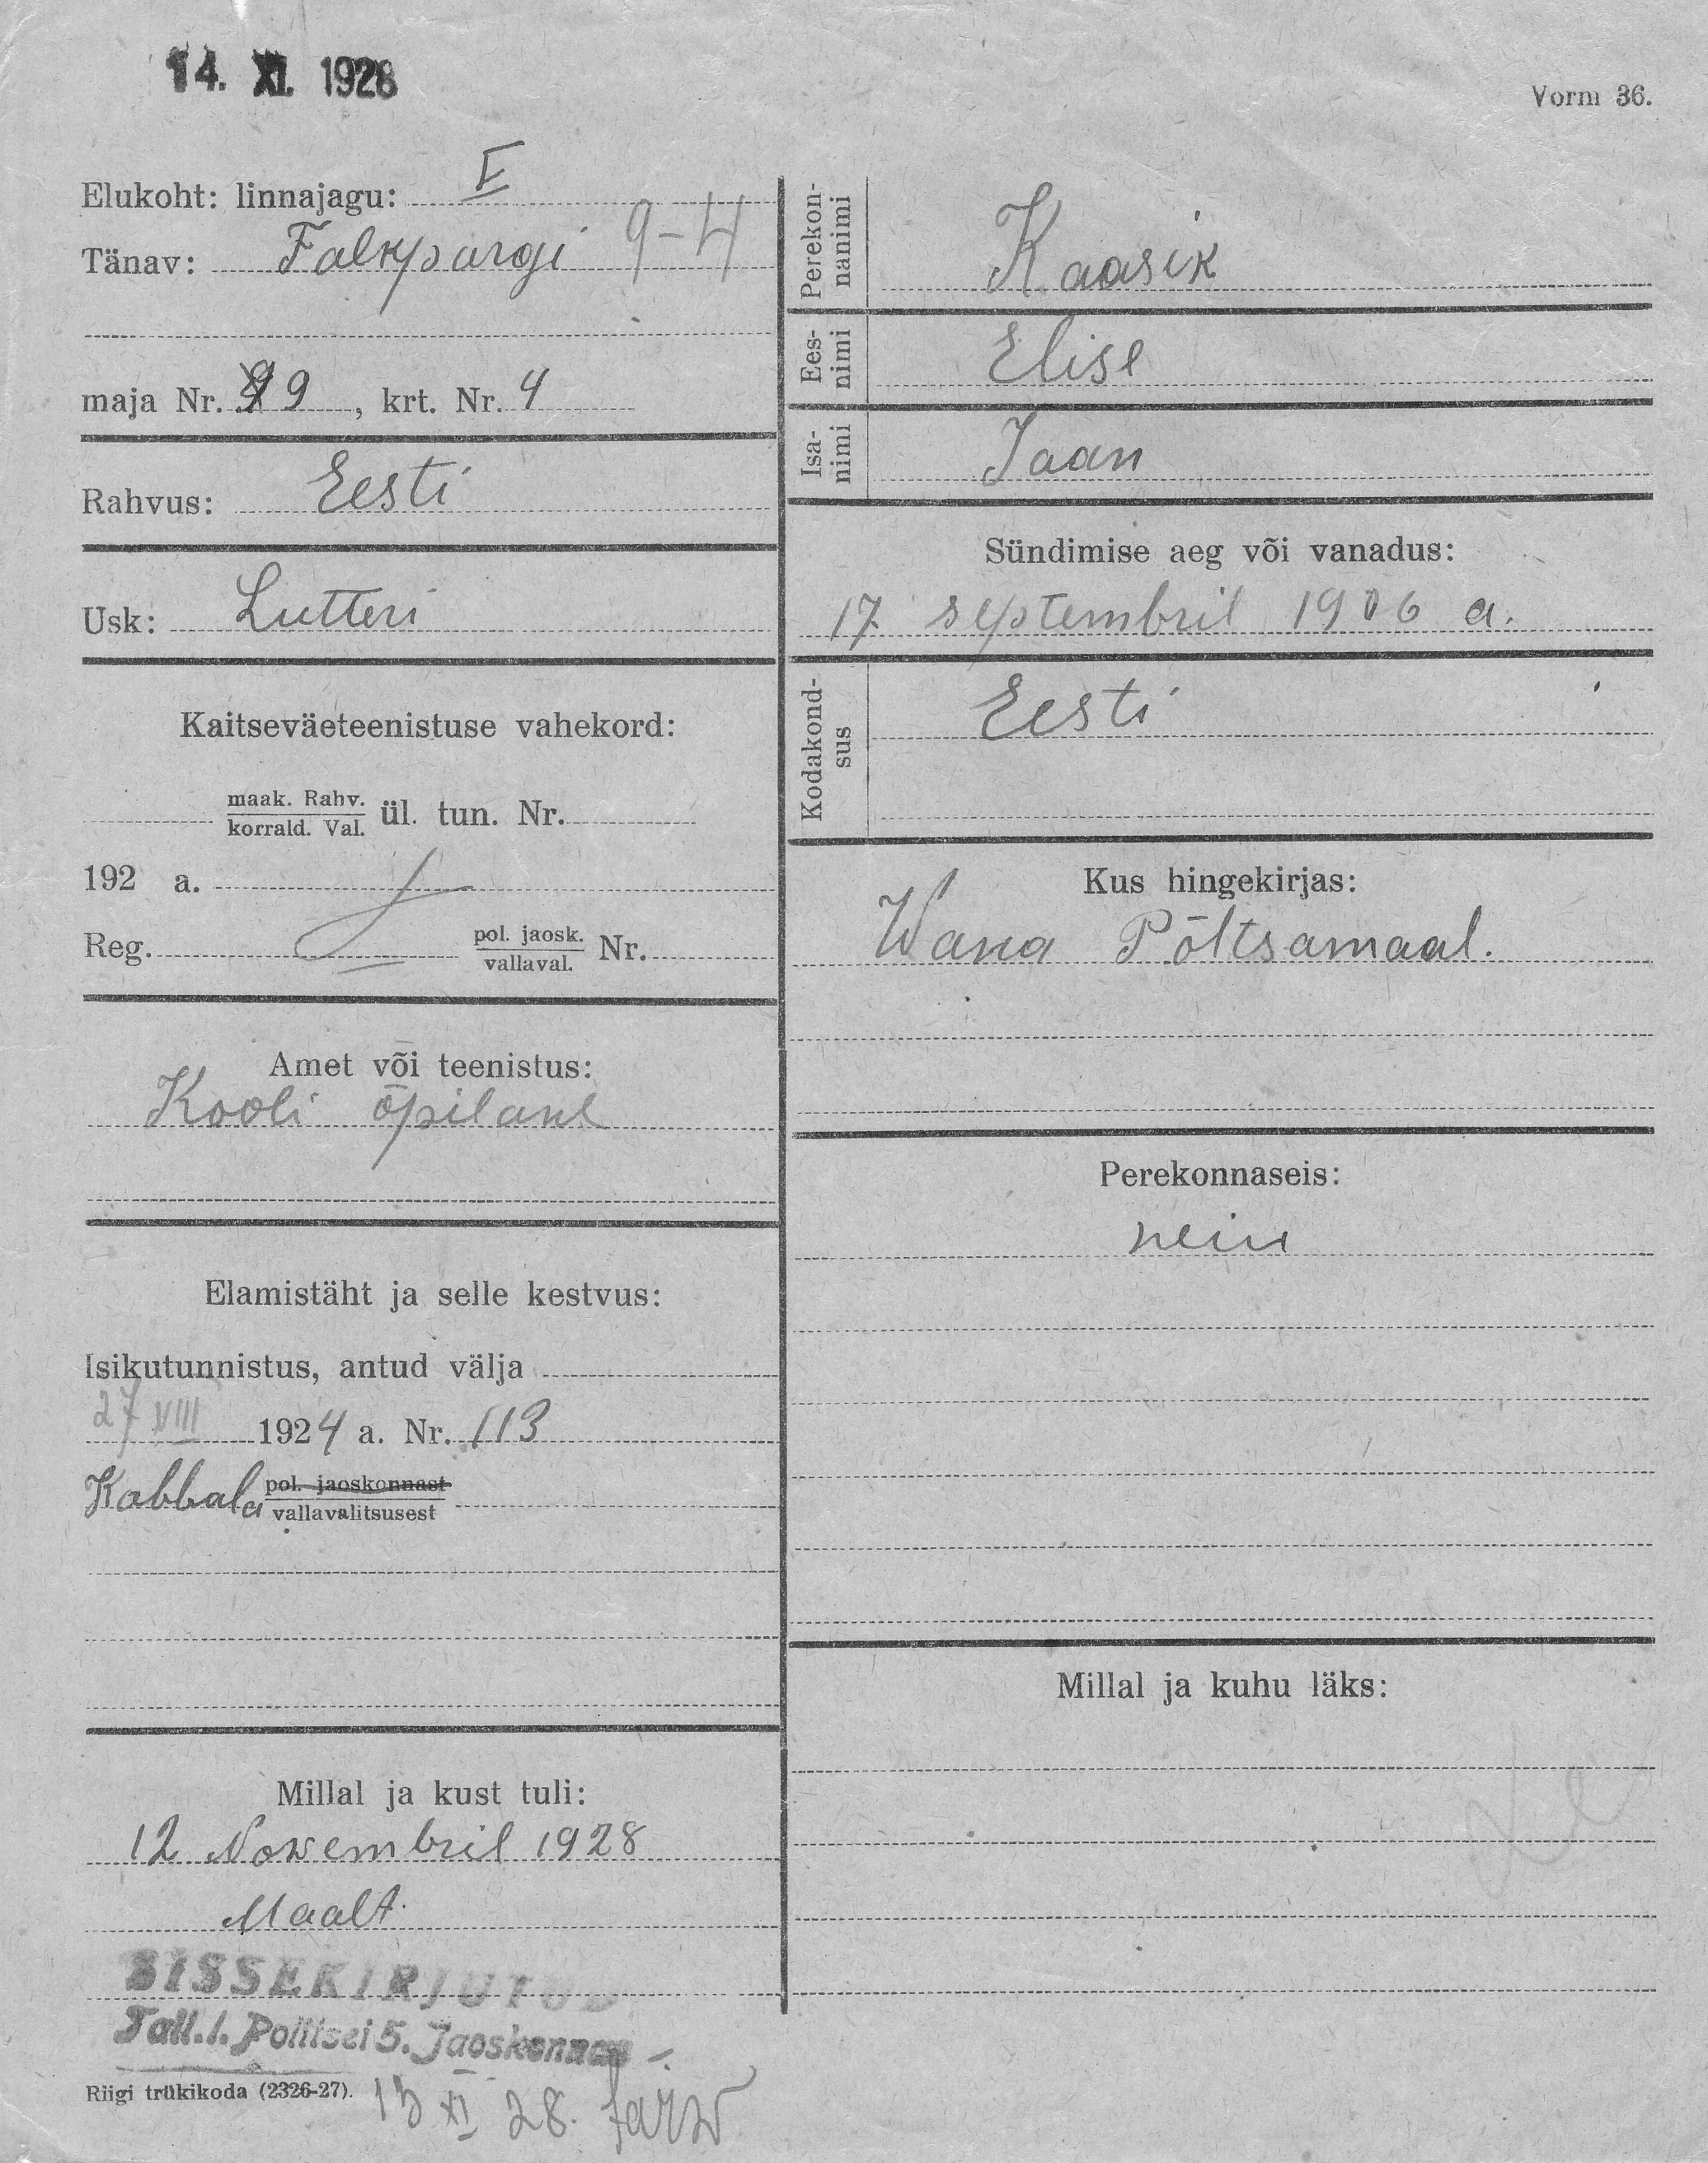 14. XI. 1928
Vorm 36.
Elukoht: linnajagu: V
Tänav: Falkpargi 9-4
maja Nr. 9 , krt. Nr. 4
Rahvus: Eesti
Usk: Lutteri
Kaitseväeteenistuse vahekord:
maak. Rahv.
korrald. Val. ül. tun. Nr.
192 a.
Reg. pol. jaosk.
vallaval. Nr.
Amet või teenistus:
Kooli õpilane
Elamistäht ja selle kestvus:
Isikutunnistus, antud välja
27 VIII 1924 a. Nr. 113
Kabbala pol. jaoskonnast
vallavalitsusest
Millal ja kust tuli:
12 Nowembril 1928
Maalt.
SISSEKIRJUTUD
Tall.l. Politsei 5. Jaoskonnas
Riigi trükikoda (2326-27). 13 XI 28.
Perekon-
nanimi
Kaasik
Ees-
nimi
Elise
Isa-
nimi
Jaan
Sündimise aeg või vanadus:
17 septembril 1906 a.
Kodakond-
sus
Eesti
Kus hingekirjas:
Wana Põltsamaal.
Perekonnaseis:
neiu
Millal ja kuhu läks: